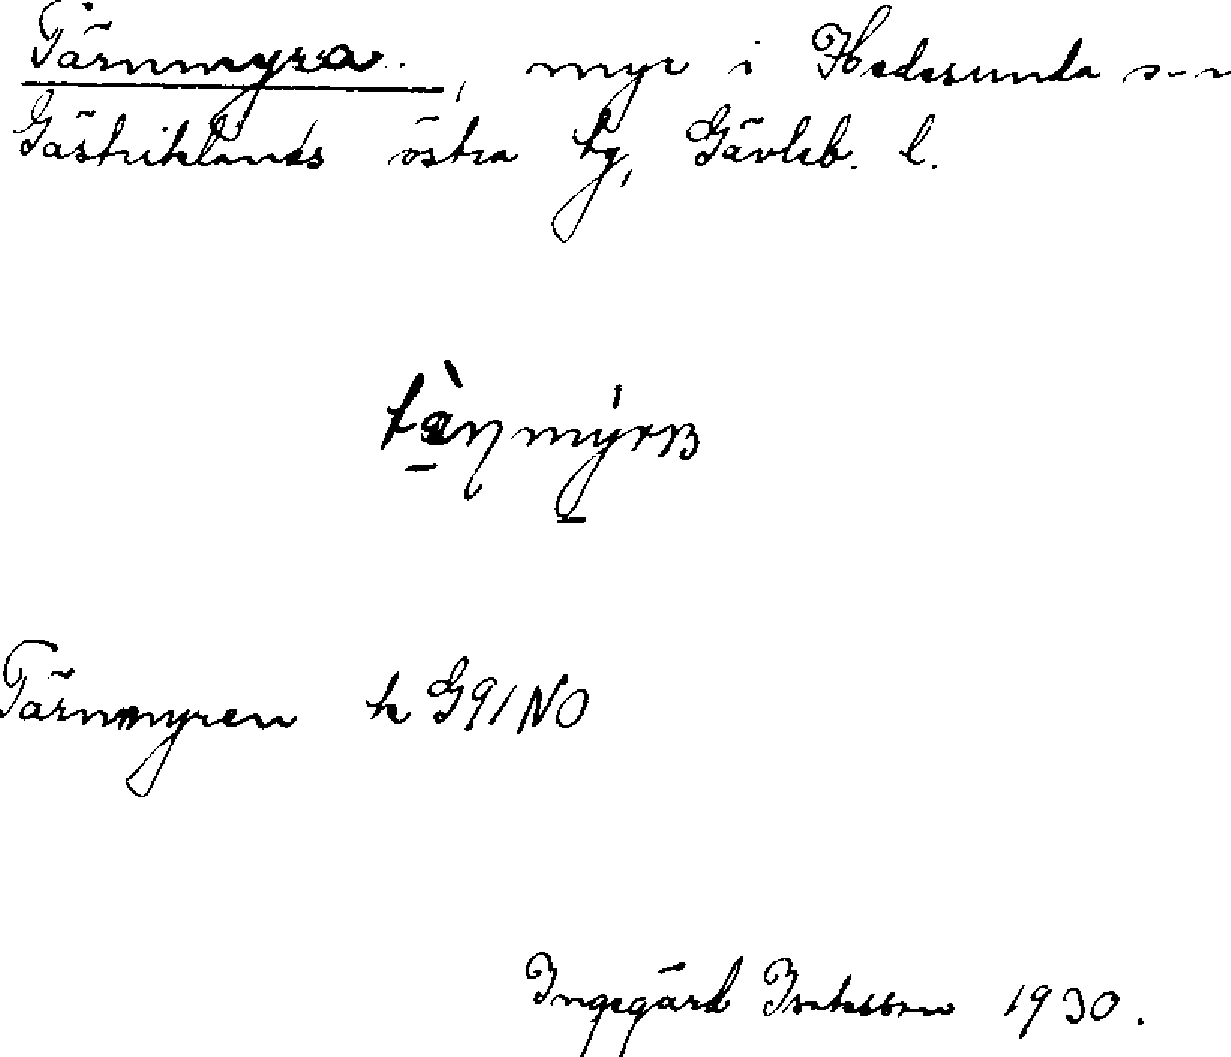 Tärnmyra, myr i Hedesunda s-n
Gästriklands östra tg, Gävleb. l.
Tärnmyren k G91NO
Ingegärd Isaksson 1930.